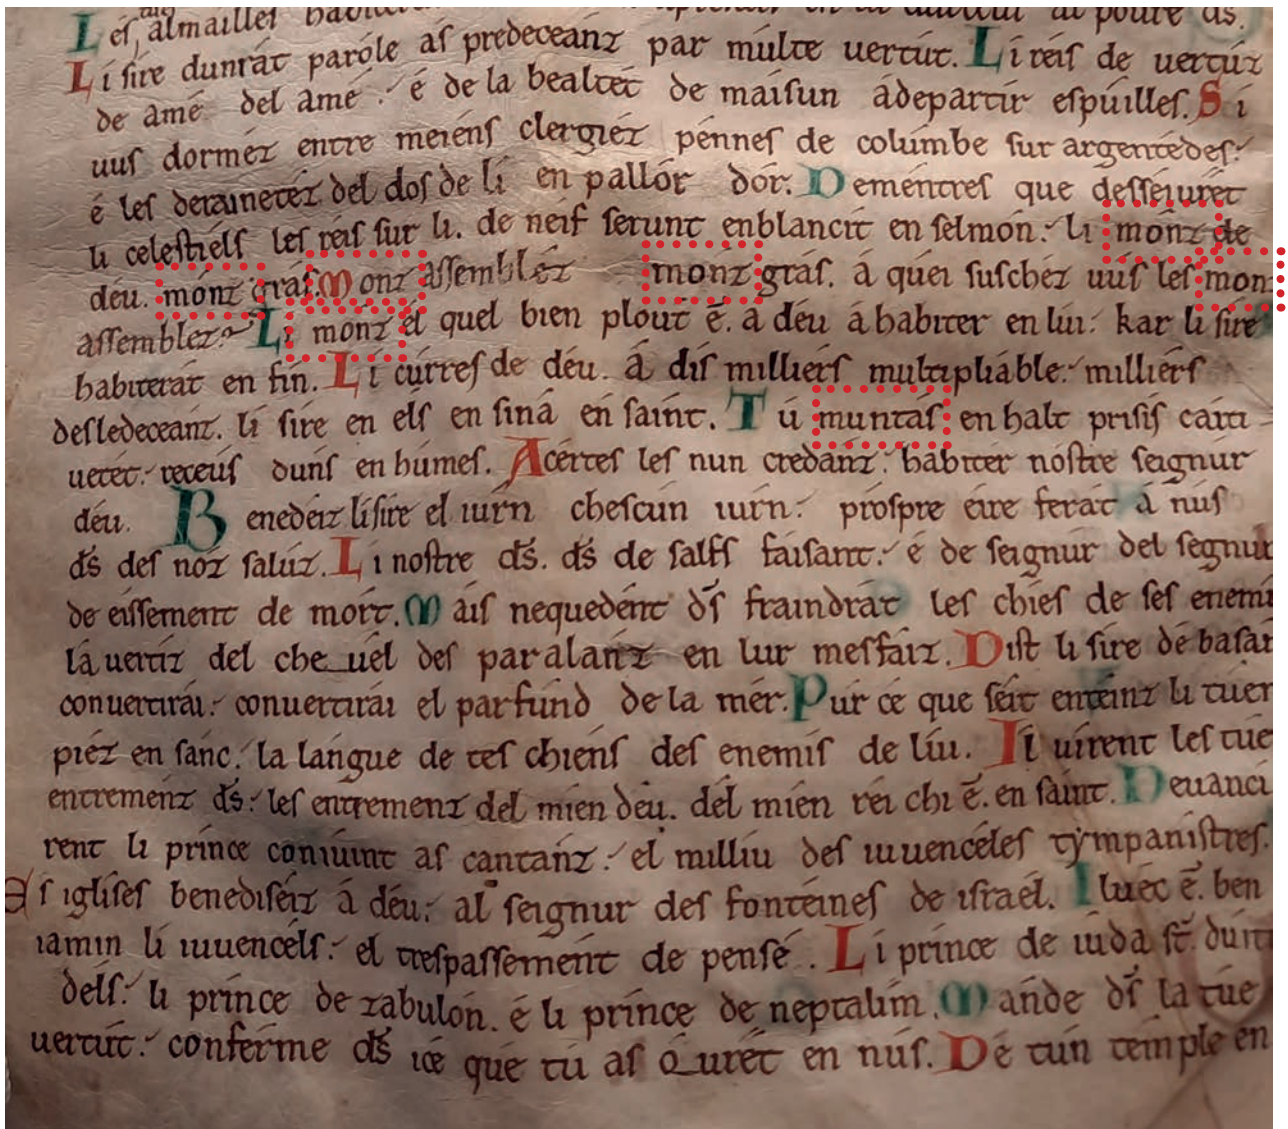 Les almailles habiter
Li sire durrát paróle as predeceanz par múlte uertút. Li réis de uertúz
de amé del amé. é de la bealtéc de maisun ádepartir espúilles. Si
uus dorméz entre méiens clergiéz pénnes de columbe sur argentédes.
é les derainetez del dos de li en pallór dór. Dementres que desseiurét
li celestiéls les réis sur li. de neif serunt enblancit en selmón. li mónz de
déu. mónz grás Monz assembléz mónz grás. á quei suschéz uús les mon
assemblez. Li mónz él quel bien ploút ē. á déu á habiter en lúi. kar li sire
habiterát en fin. Li cúrres de déu. á dís milliérs multipliáble. milliérs
desledeceanz. li sire en els en siná én saint. Tú muntás en halt prisís cáiti
uetét. recéus duns en humes. Acértes les nun credánz. habitér nóstre seignur
déu. Benedéiz li sire el iúrn chescún iúrn. próspre éire ferát á nús
ds des nóz salúz. Li nostre ds. ds de salfs faisant. é de seignur del segnur
de eissement de mórt. Máis nequedént ds fraindrát les chiés de ses enemi
lá uertíz del cheuél des paralánz en lur mesfáiz. Dist li sire dé basan
conuertirái. conuertirái el parfúnd de la mér. Pur cé que séit entéinz li tuen
piéz en sanc. la lángue de tes chiéns des enemis de lúi. Il uírent les tue
entremenz ds. les entremenz del mien déu. del mién réi chi ē. en saint. Deuanci
rent li prínce coniúint as cantánz. el millíu des iuuencéles tympanístres.
Es iglíses benediséiz á déu. al seignur des fontéines de israél. Iluéc ē. ben
iamin li iuuencéls. el trespassemént de pensé. Li prince de iúda st. dúitr
dels. li prínce de zabulón. é li prínce de neptalím. Mánde ds la túe
uertút. conférme ds icé que tú ás óurét en nús. Dé tún témple en